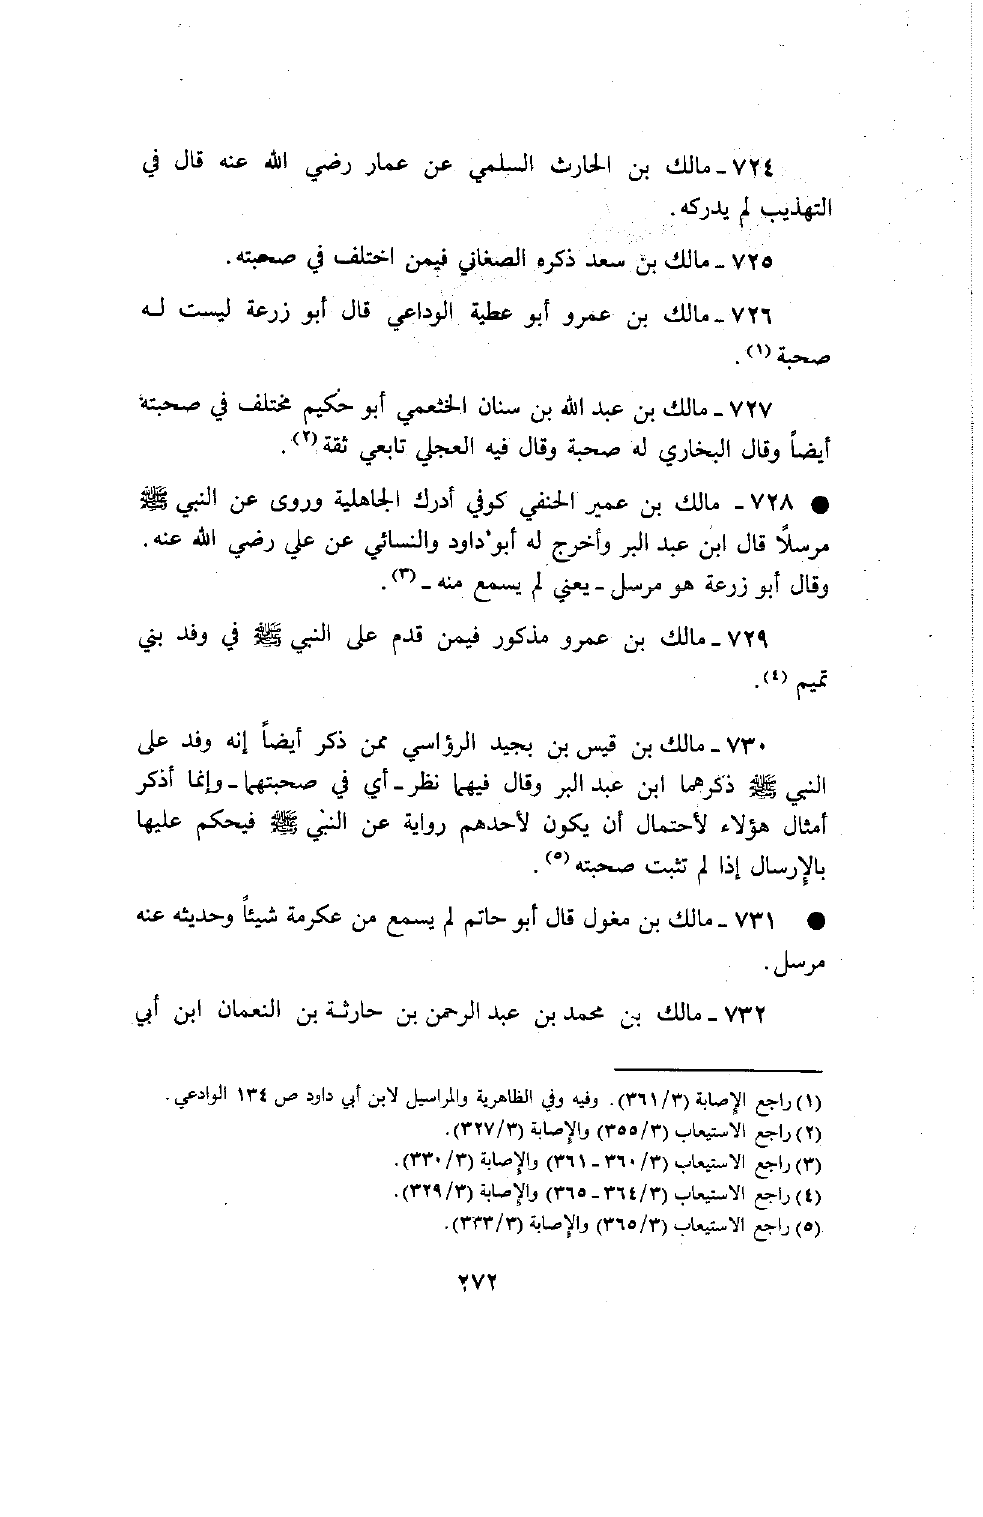 ٧٢٤ ـ مالك بن الحارث السلمي عن عمار رضي الله عنه قال في
التهذيب لم يدركه.
٧٢٥ ـ مالك بن سعد ذكره الصغاني فيمن اختلف في صحبته.
٧٢٦ ـ مالك بن عمرو أبو عطية الوداعي قال أبو زرعة ليست له
صحبة (١).
٧٢٧ ـ مالك بن عبد الله بن سنان الخثعمي أبو حكيم مختلف في صحبته
أيضاً وقال البخاري له صحبة وقال فيه العجلي تابعي ثقة (٢).
● ٧٢٨ ـ مالك بن عمير الحنفي كوفي أدرك الجاهلية وروى عن النبي ﷺ
مرسلاً قال ابن عبد البر وأخرج له أبو داود والنسائي عن علي رضي الله عنه.
وقال أبو زرعة هو مرسل ـ يعني لم يسمع منه ـ (٣).
٧٢٩ ـ مالك بن عمرو مذكور فيمن قدم على النبي ﷺ في وفد بني
تميم (٤).
٧٣٠ ـ مالك بن قيس بن بجيد الرؤاسي ممن ذكر أيضاً إنه وفد على
النبي ﷺ ذكرهما ابن عبد البر وقال فيهما نظر ـ أي في صحبتهما ـ وإنما أذكر
أمثال هؤلاء لأحتمال أن يكون لأحدهم رواية عن النبي ﷺ فيحكم عليها
بالإرسال إذا لم تثبت صحبته (٥).
● ٧٣١ ـ مالك بن مغول قال أبو حاتم لم يسمع من عكرمة شيئاً وحديثه عنه
مرسل.
٧٣٢ ـ مالك بن محمد بن عبد الرحمن بن حارثة بن النعمان ابن أبي
(١) راجع الإصابة (٣/٣٦١). وفيه وفي الظاهرية والمراسيل لابن أبي داود ص ١٣٤ الوادعي.
(٢) راجع الاستيعاب (٣/٣٥٥) والإصابة (٣/٣٢٧).
(٣) راجع الاستيعاب (٣/٣٦٠ ـ ٣٦١) والإصابة (٣/٣٣٠).
(٤) راجع الاستيعاب (٣/٣٦٤ ـ ٣٦٥) والإصابة (٣/٣٢٩).
(٥) راجع الاستيعاب (٣/٣٦٥) والإصابة (٣/٣٣٣).
٢٧٢